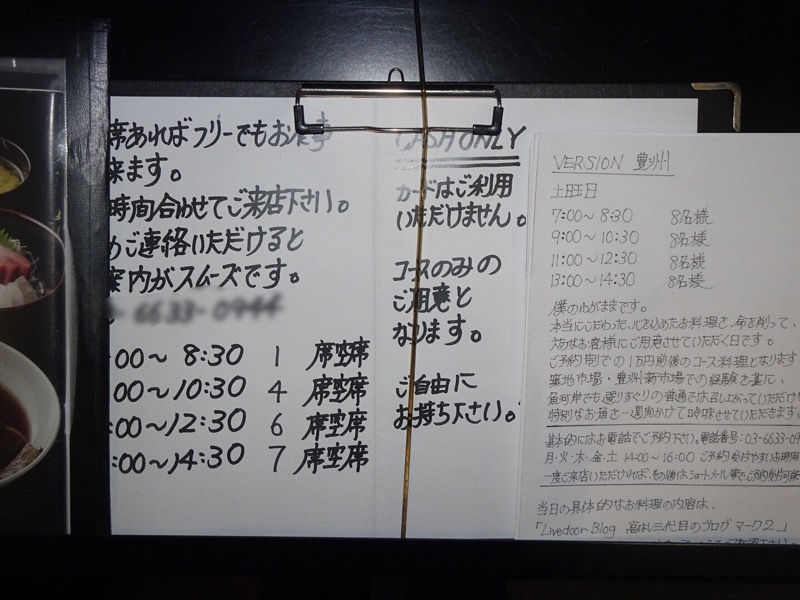 席あればフリーでもお食事
来ます。
時間合わせてご来店下さい。
めご連絡いただけると
案内がスムーズです。
00～ 8:30 1 席空席
00～10:30 4 席空席
00～12:30 6 席空席
00～14:30 7 席空席
CASH ONLY
カードはご利用
いただけません。
コースのみの
ご用意と
なります。
ご自由に
お持ち下さい。
VERSION 豊洲
土曜日
7:00～8:30 8名様
9:00～10:30 8名様
11:00～12:30 8名様
13:00～14:30 8名様
僕のわがままです。
本当にこだわった、心を込めたお料理を、命を削って、
大切なお客様にご用意させていただく日です。
ご予約制での1万円前後のコース料理となります
築地市場・豊洲新市場での経験を基に、
魚河岸でも選りすぐりの普通では召し上がっていただけ
特別なお魚を一週間かけて吟味させていただきます。
基本的にはお電話でご予約下さい。電話番号:03-6633-09
月・火・木・金・土 14:00～16:00 ご予約受付やすいお時間
一度ご来店いただければ、その後はショートメール等でご予約受付可能
当日の具体的なお料理の内容は、
「Livedoor Blog 高はし三代目のブログ マーク2」